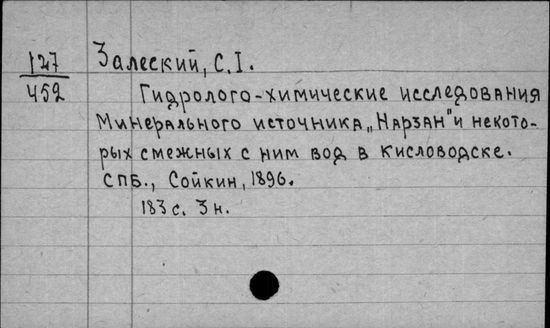 127
452
Залеский, С.I.
Гидролого-химические исследования
минерального источника „Нарзан" и некото-
рых смежных с ним вод в Кисловодске.
СПБ., Сойкин, 1896.
183 с. 3 н.